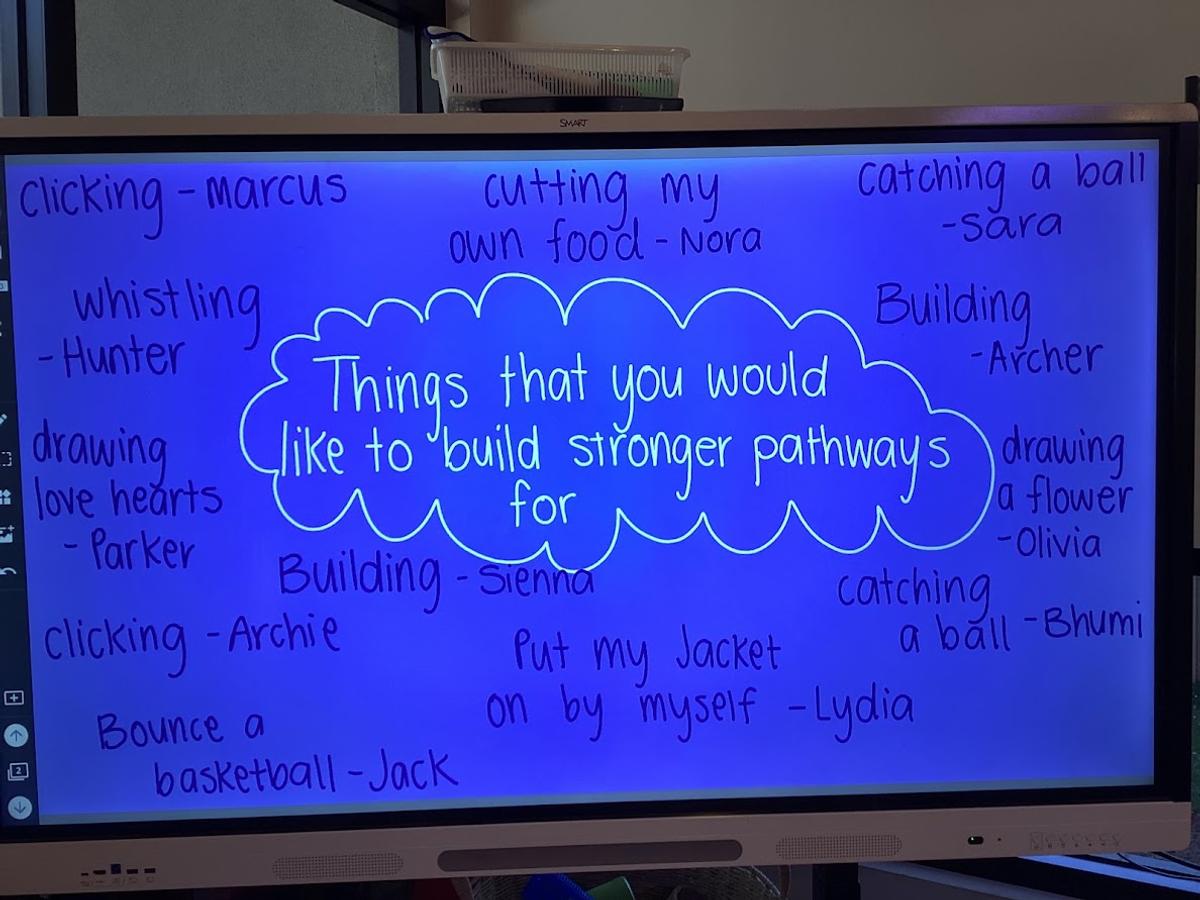 SMART
clicking - marcus
cutting my
own food - Nora
catching a ball
- Sara
whistling
- Hunter
Building
- Archer
Things that you would
like to build stronger pathways
for
drawing
love hearts
- Parker
drawing
a flower
- Olivia
Building - Sienna
catching
a ball - Bhumi
clicking - Archie
Put my Jacket
on by myself - Lydia
Bounce a
basketball - Jack
2